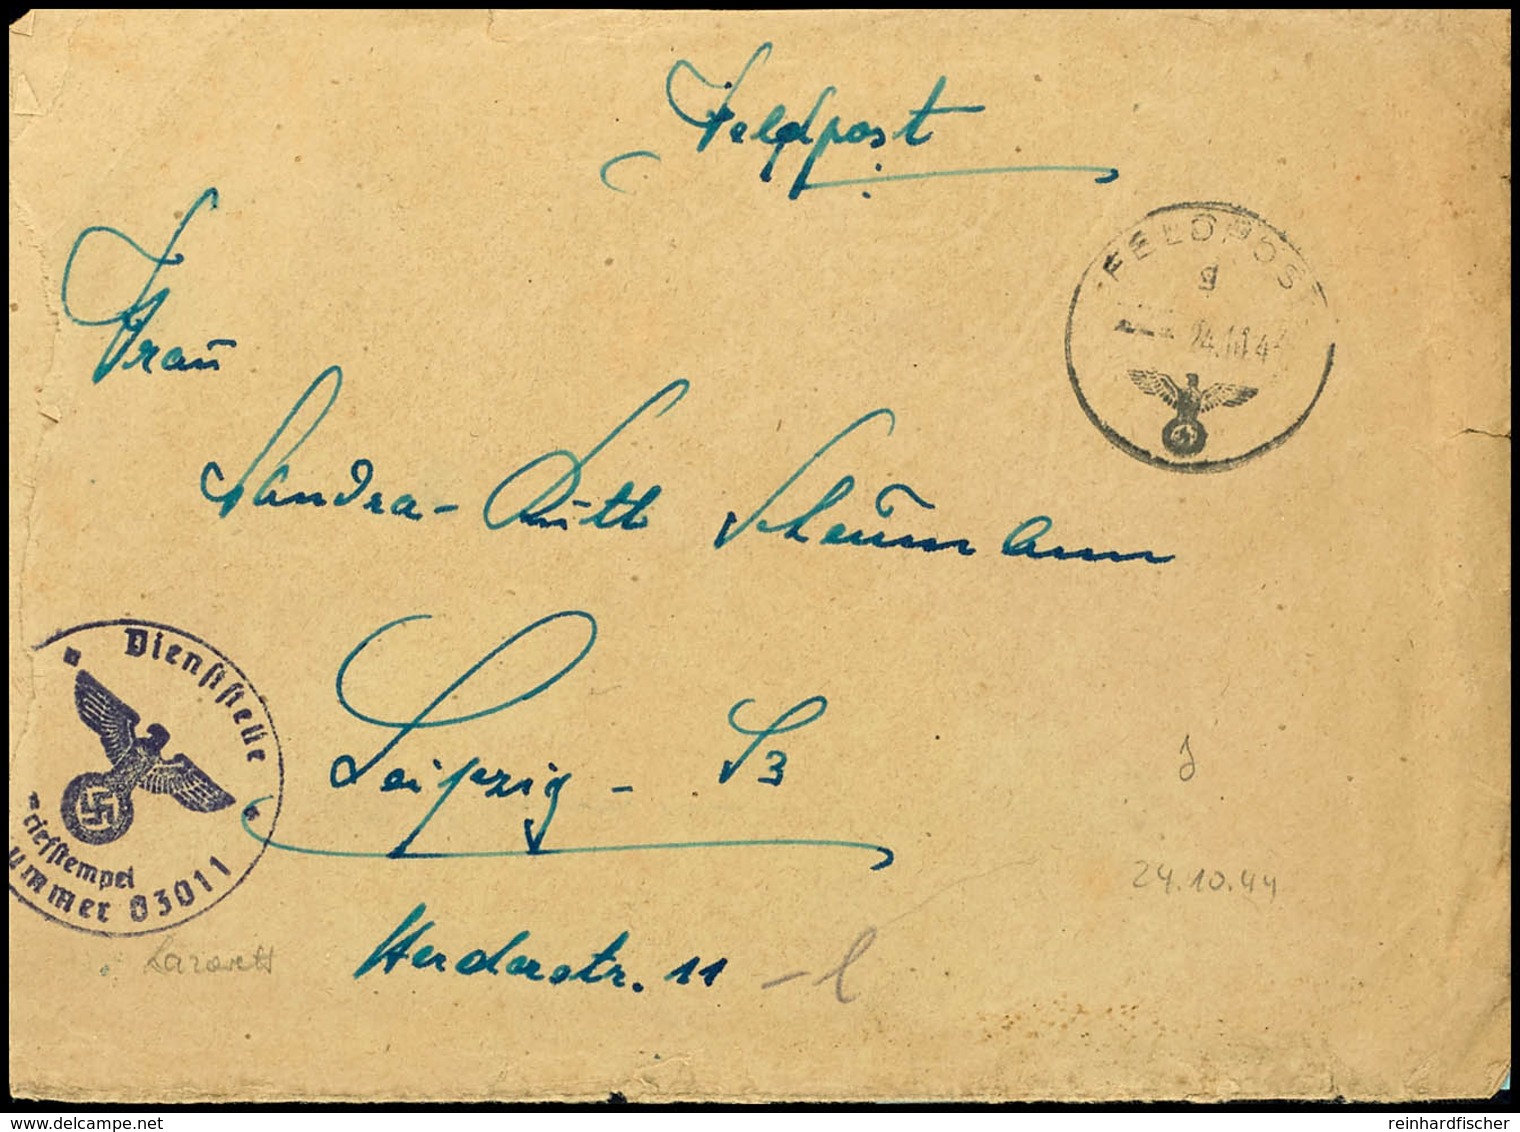 Feldpost
FELDPOST
g
24.10.44
Frau
Sandra-Ruth Scheumann
Dienststelle
Leipzig - S3
riefstempel
ummer 03011
24.10.44
Lazarett
Herderstr. 11
delcampe.net
reinhardfischer